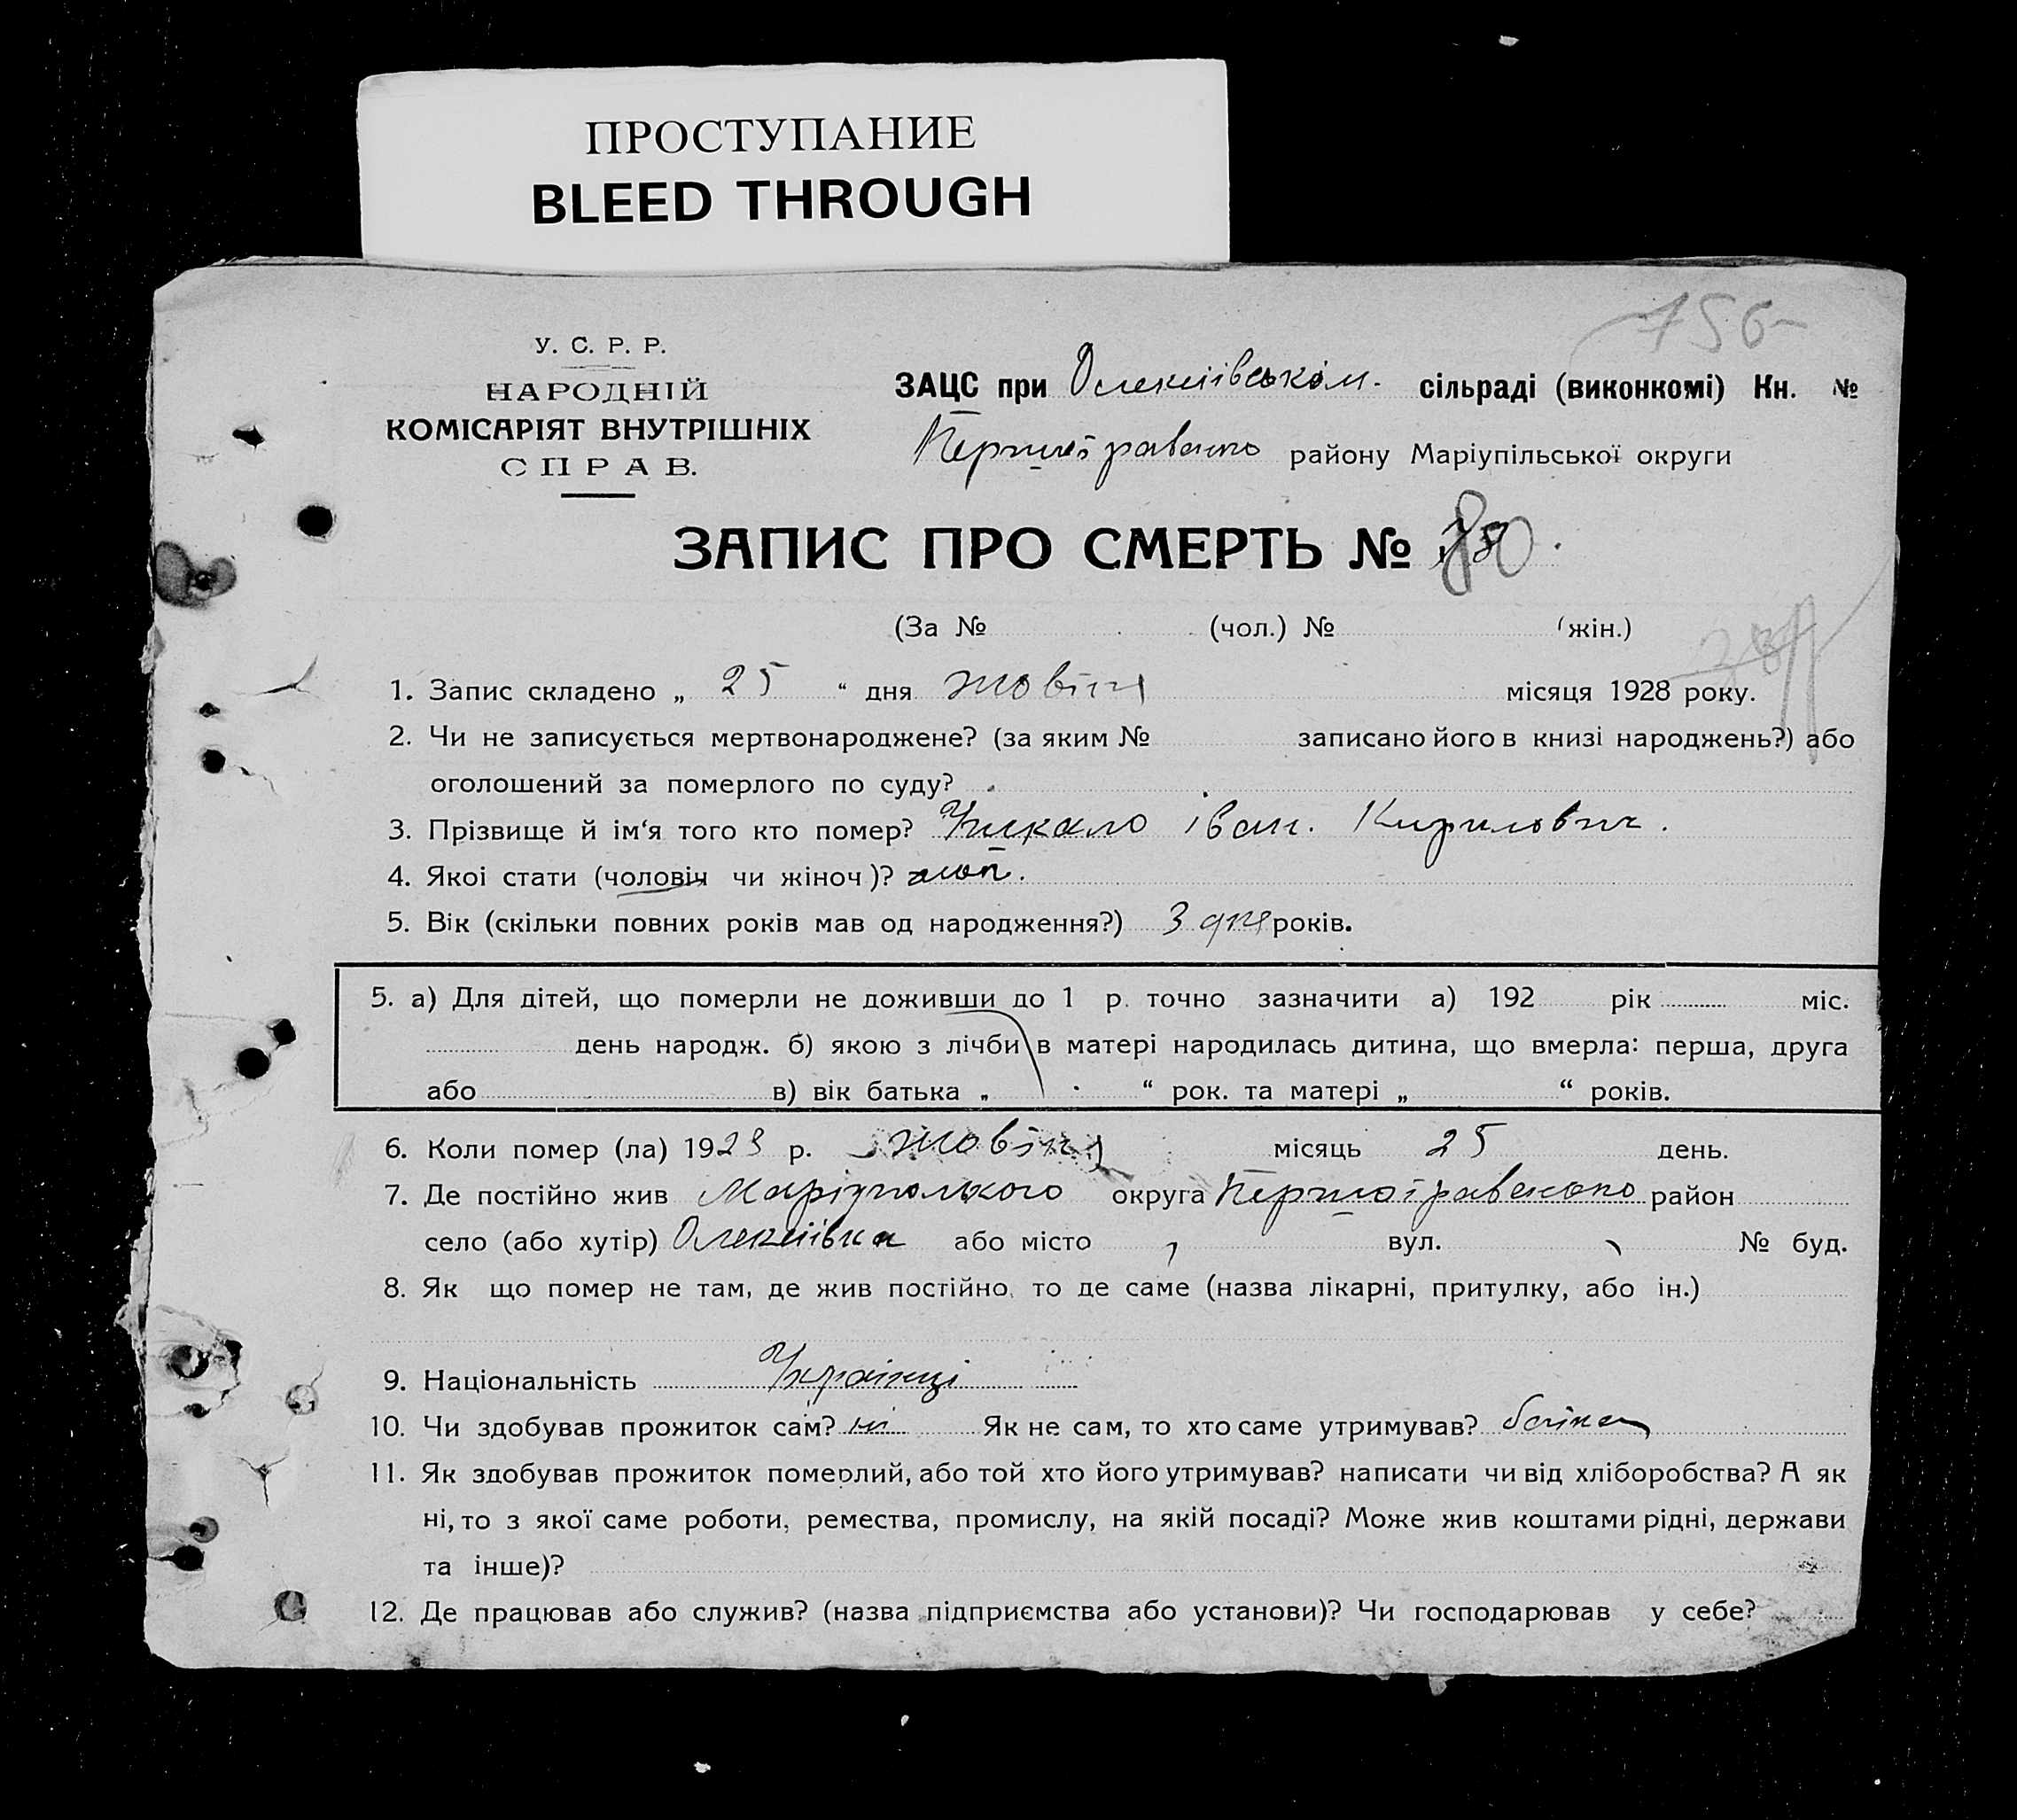 ПРОСТУПАНИЕ
BLEED THROUGH
156
У. С. Р. Р.
НАРОДНІЙ
КОМІСАРІЯТ ВНУТРІШНІХ
СПРАВ.
ЗАЦС при Олекиівськом. сільраді (виконкомі) Кн. №
району Маріупільської округи
ЗАПИС ПРО СМЕРТЬ № 80.
(За № (чол.) № (жін.)
1. Запис складено „ 25 “ дня жовтня місяця 1928 року.
2. Чи не записується мертвонароджене? (за яким № записано його в книзі народжень?) або
оголошений за померлого по суду?
3. Прізвище й ім‘я того кто помер? іван. Кирилович.
4. Якоі стати (чоловіч чи жіноч)?
5. Вік (скільки повних років мав од народження?) 3 дня років.
5. а) Для дітей, що померли не доживши до 1 р. точно зазначити а) 192 рік міс.
день народж. б) якою з лічби в матері народилась дитина, що вмерла: перша, друга
або в) вік батька „ “ рок. та матері „ “ років.
6. Коли помер (ла) 1928 р. жовтня місяць 25 день.
7. Де постійно жив Маріупольского округа район
село (або хутір) Олекиівка або місто , вул. № буд.
8. Як що помер не там, де жив постійно, то де саме (назва лікарні, притулку, або ін.)
9. Національність Українці
10. Чи здобував прожиток сам? ні Як не сам, то хто саме утримував? батько
11. Як здобував прожиток померлий, або той хто його утримував? написати чи від хліборобства? А як
ні, то з якої саме роботи, ремества, промислу, на якій посаді? Може жив коштами рідні, держави
та інше)?
12. Де працював або служив? (назва підприємства або установи)? Чи господарював у себе?